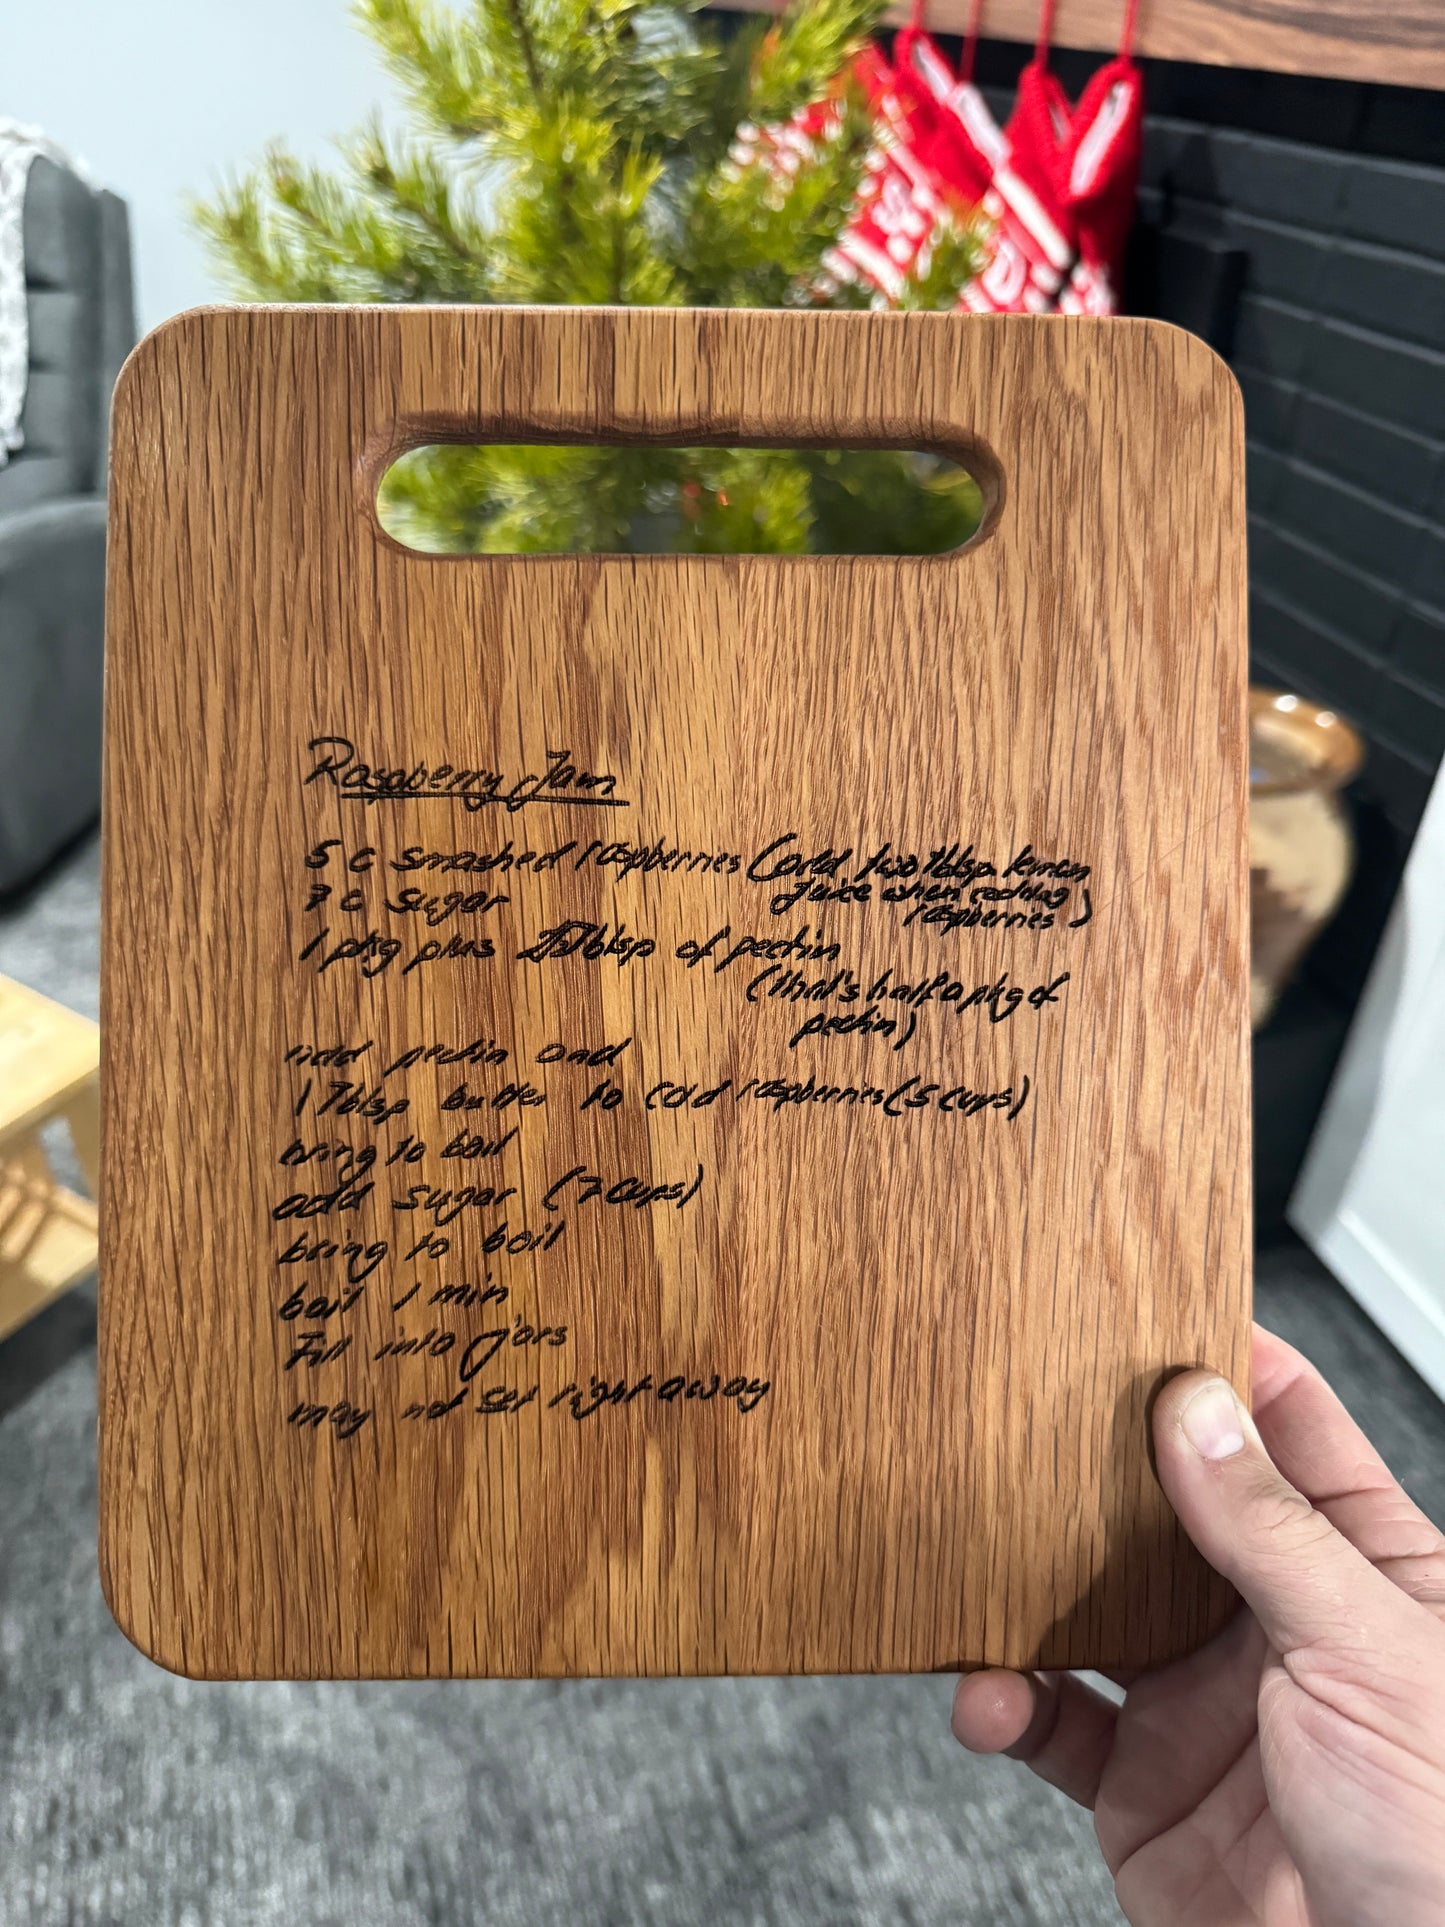 Raspberry Jam
5 c smashed raspberries (add two Tblsp lemon
juice when adding
raspberries)
7 c sugar
1 pkg plus Tblsp of pectin
(that's half a pkg of
pectin)
add pectin and
1 Tblsp butter to cold raspberries (5 cups)
bring to boil
add sugar (7 cups)
bring to boil
boil 1 min
Fill into jars
may not set right away